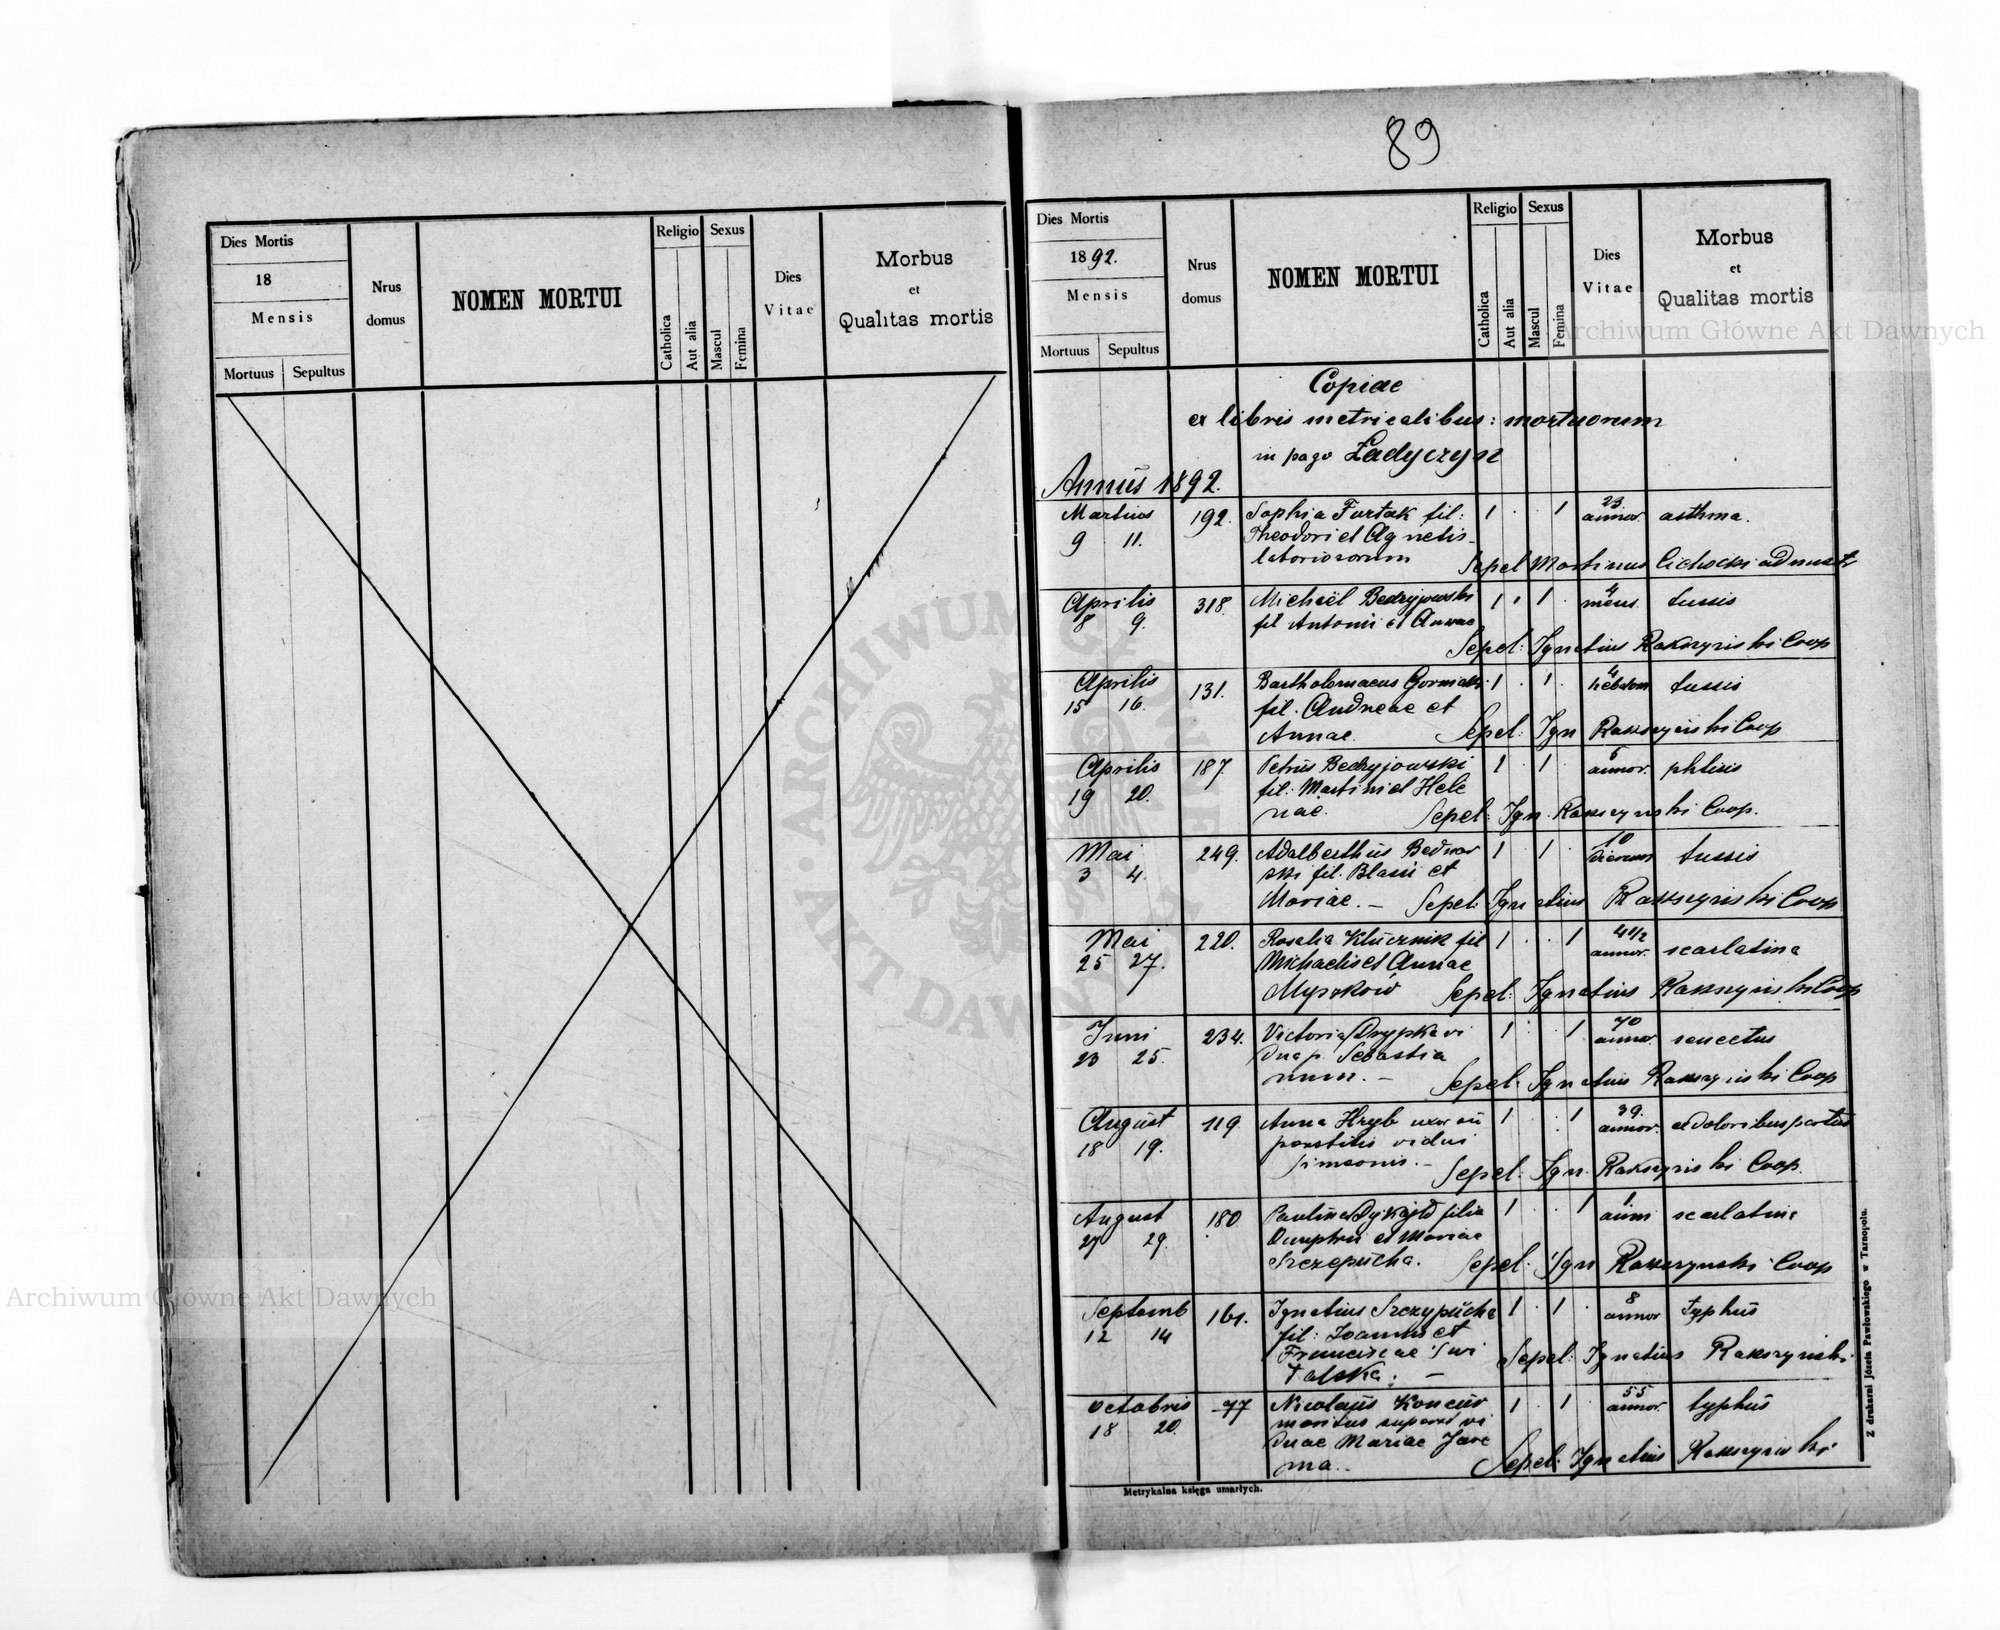 Dies Mortis
18
Mensis
Mortuus
Sepultus
Nrus
domus
NOMEN MORTUI
Religio
Catholica
Aut alia
Sexus
Mascul
Femina
Dies
Vitae
Morbus
et
Qualitas mortis
89
Dies Mortis
1892.
Mensis
Mortuus
Sepultus
Nrus
domus
NOMEN MORTUI
Religio
Catholica
Aut alia
Sexus
Mascul
Femina
Dies
Vitae
Morbus
et
Qualitas mortis
Copiae
ex libris metricalibus: mortuorum
in pago Ładyczyn
Annus 1892.
Martius 192. Sophia Furtak fil: 1 . . 1 23. annor. asthma.
9 11. Theodori et Agnetis
laboriosorum Sepel Martinus Cichocki
Aprilis 318. Michaël Bedryjowski 1 . 1 . 4 mens. tussis
8 9. fil Antonii et Annae
Sepel: Ignatius Rakszyński Coop
Aprilis 131. Bartholomaeus 1 . 1 . 4 hebdom tussis
15 16. fil. Andreae et
Annae. Sepel: Ign Rakszyński Coop
Aprilis 187. Petrus Bedryjowski 1 . 1 . 5 annor. phtisis
19 20. fil: Martini et Hele
nae. Sepel: Ign. Rakszyński Coop.
Mai 249. Adalberthus Bednar 1 . 1 . 10 dierum tussis
3 4. ski fil. Blasii et
Mariae. – Sepel: Ignatius Rakszyński Coop
Mai 220. Rosalia Klucznik fil 1 . . 1 4 1/2 annor. scarlatina
25 27. Michaelis et Annae
Sepel: Ignatius Rakszyński Coop
Juni 234. Victoria vi 1 . . 1 70 annor. senectus
23 25. dua p. Sebastia
num. – Sepel: Ignatius Rakszyński Coop
August 119. Anna Hryb uxor su 1 . . 1 39. annor. ex doloribus partus
18 19. perstitis vidui
Simeonis. – Sepel: Ign. Rakszyński Coop.
August 180. Paulina filia 1 . . 1 1 anni scarlatina
27 29. Onuphrii et Mariae
Szczepucha. Sepel: Ign Rakszyński Coop
Septemb 161. Ignatius Szczypucha 1 . 1 . 8 annor typhus
12 14 fil: Joannis et
Franciscae Swi
talska. – Sepel: Ignatius Rakszyński
Octobris 77 Nicolaus Koncur 1 . 1 . 55 annor. typhus
18 20. maritus superst vi
duae Mariae Jare
ma. Sepel: Ignatius Rakszyński
Metrykalna księga umarłych.
Z drukarni Józefa Pawłowskiego w Tarnopolu.
Archiwum Główne Akt Dawnych
Archiwum Główne Akt Dawnych
ARCHIWUM GŁÓWNE AKT DAWNYCH